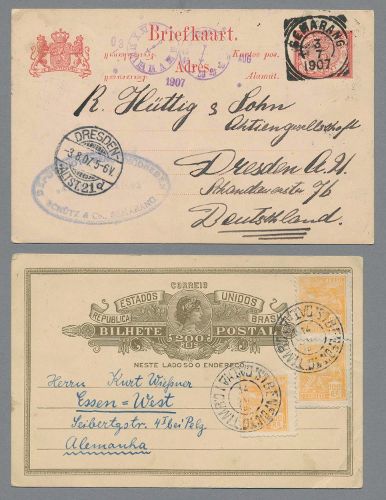 Briefkaart.
Kartoe pos.
Adres.
Alamat.
1907
SEMARANG
3
7
1907
R. Hüttig & Sohn
Aktiengesellschaft
Dresden A. 4
Schandauerstr 76
Deutschland.
DRESDEN-
3.8.07. 5-6V.
ALTST. 21 d
SCHÜTZ & Co., SEMARANG
CORREIO
ESTADOS UNIDOS
REPUBLICA BRASIL
BILHETE POSTAL
200
NESTE LADO SO O ENDEREÇO
Herrn Kurt Wießner
Essen-West
Seibertzstr. 4 bei Pelz
Alemanha